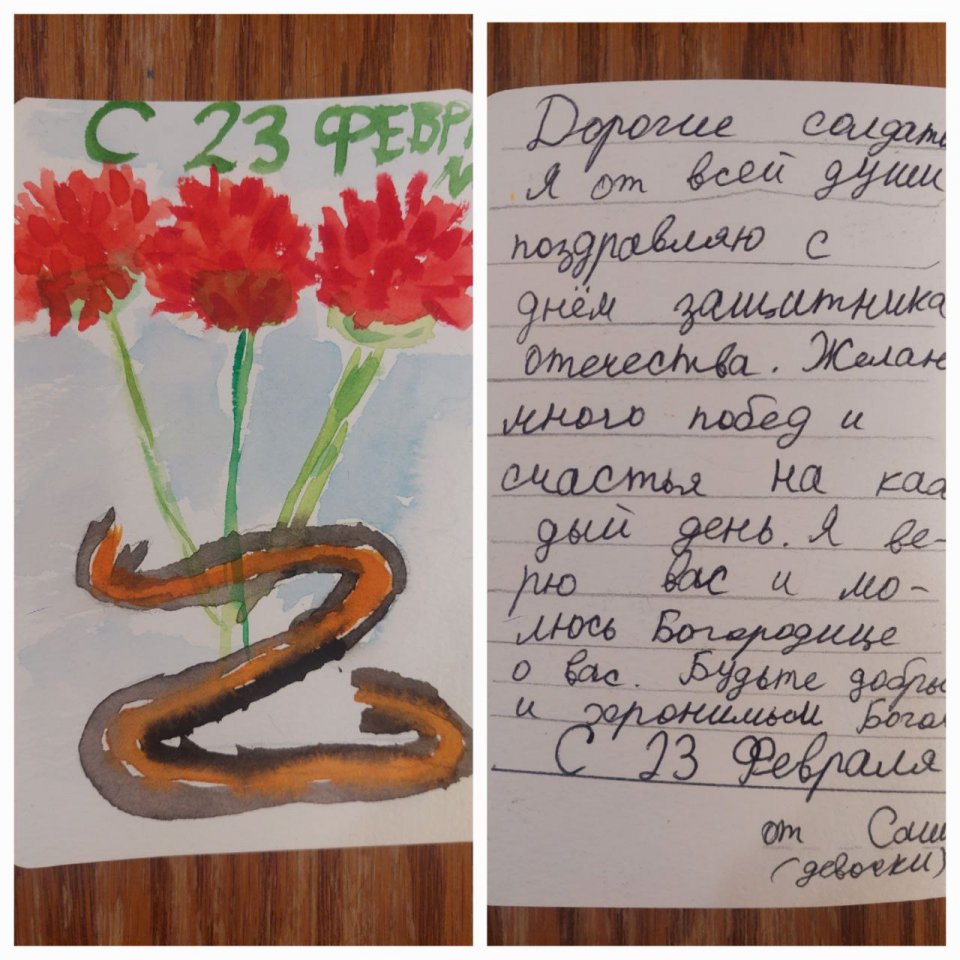 С 23 ФЕВР
Дорогие солдат
Я от всей души
поздравляю с
днём защитника
отечества. Желаю
много побед и
счастья на каж
дый день. Я ве-
рю вас и мо-
люсь Богородице
о вас. Будьте добры
и хронимыми Бого
С 23 Февраля
от Саш
(девочки)